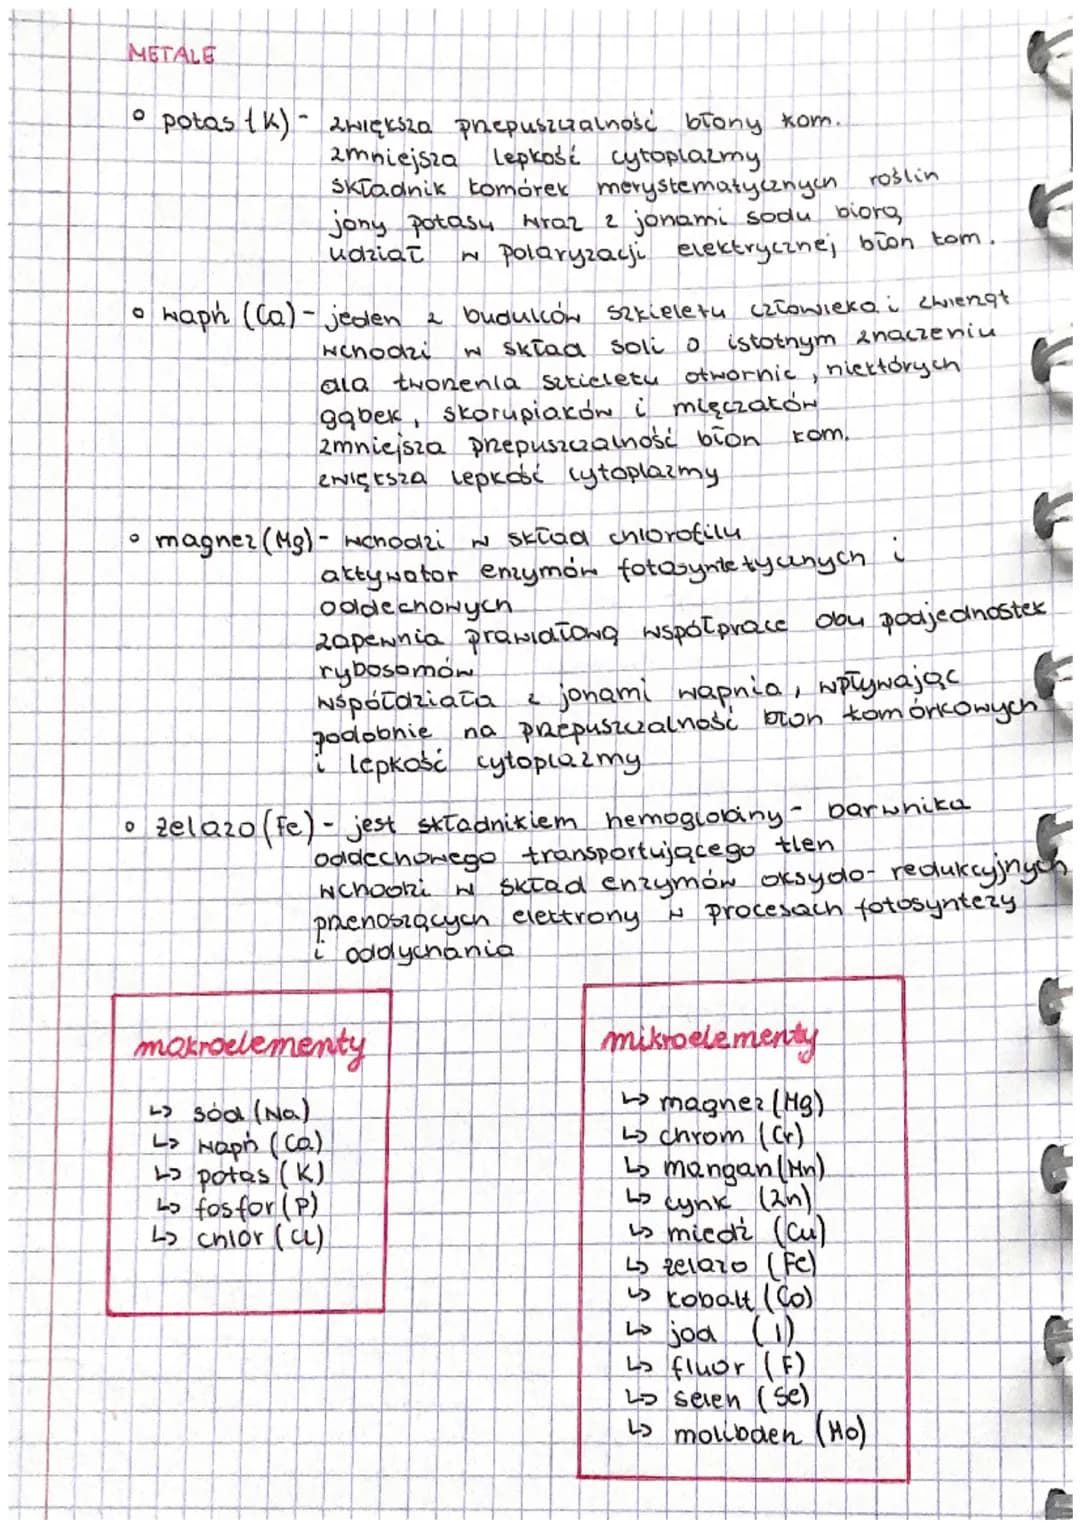 METALE
potas (K) - zwiększa przepuszczalność błony kom.
zmniejsza lepkość cytoplazmy
składnik komórek merystematycznych roślin
jony potasu wraz z jonami sodu biorą
udział w polaryzacji elektrycznej błon kom.
wapń (Ca) - jeden z budulców szkieletu człowieka i zwierząt
wchodzi w skład soli o istotnym znaczeniu
dla tworzenia szkieletu otwornic, niektórych
gąbek, skorupiaków i mięczaków
zmniejsza przepuszczalność błon kom.
zwiększa lepkość cytoplazmy
magnez (Mg) - wchodzi w skład chlorofilu
aktywator enzymów fotosyntetycznych i
oddechowych
zapewnia prawidłową współprace obu podjednostek
rybosomów
współdziała z jonami wapnia, wpływając
podobnie na przepuszczalność błon komórkowych
i lepkość cytoplazmy
żelazo (Fe) - jest składnikiem hemoglobiny - barwnika
oddechowego transportującego tlen
wchodzi w skład enzymów oksydo-redukcyjnych
przenoszących elektrony w procesach fotosyntezy
i oddychania
makroelementy
↳ sód (Na)
↳ wapń (Ca)
↳ potas (K)
↳ fosfor (P)
↳ chlor (Cl)
mikroelementy
↳ magnez (Mg)
↳ chrom (Cr)
↳ mangan (Mn)
↳ cynk (Zn)
↳ miedź (Cu)
↳ żelazo (Fe)
↳ kobalt (Co)
↳ jod (I)
↳ fluor (F)
↳ selen (Se)
↳ molibden (Mo)